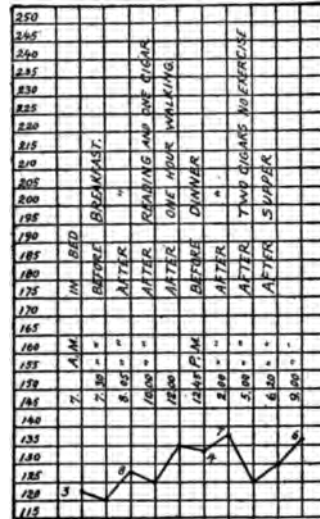 250
245
240
235
230
225
220
215
210
205
200
195
190
185
180
175
170
165
160
155
150
145
140
135
130
125
120
115
7. A.M. IN BED
7.30 " " BEFORE BREAKFAST.
8.05 " " AFTER "
10.00 " " AFTER READING AND ONE CIGAR
12.00 AFTER ONE HOUR WALKING.
P.M. BEFORE DINNER
2.00 " " AFTER "
5.00 " " AFTER TWO CIGARS NO EXERCISE
6.20 " " AFTER SUPPER
9.00 " "
3
8
7
6